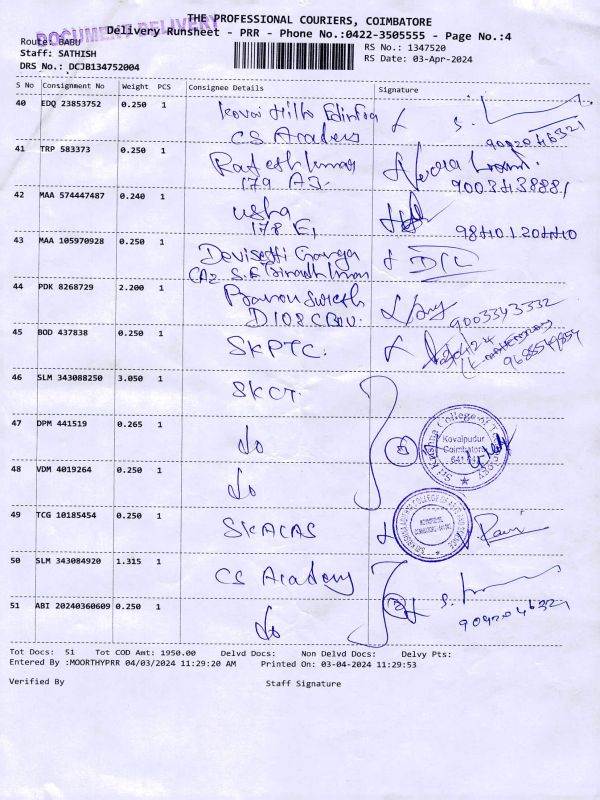 THE PROFESSIONAL COURIERS, COIMBATORE
DOCUMENT DELIVERY
Delivery Runsheet - PRR - Phone No.:0422-3505555 - Page No.:4
Route: BABU
Staff: SATHISH
DRS No.: DCJB134752004
RS No.: 1347520
RS Date: 03-Apr-2024
S No Consignment No Weight PCS Consignee Details Signature
40 EDQ 23853752 0.250 1 Kovai Hills
CS Academy
9092046321
41 TRP 583373 0.250 1 Rajesh Kumar
179 A3.
9003438881
42 MAA 574447487 0.240 1 usha
178 E1
43 MAA 105970928 0.250 1
44 PDK 8268729 2.200 1
9003343332
45 BOD 437838 0.250 1 SKPTC.
9688549854
46 SLM 343088250 3.050 1 SKCT
47 DPM 441519 0.265 1 do
Sri Krishna College of Technology
Kovaipudur
Coimbatore
48 VDM 4019264 0.250 1 do
49 TCG 10185454 0.250 1 SKACAS
Ravi
50 SLM 343084920 1.315 1 CS Academy
2
9092046321
51 ABI 20240360609 0.250 1 do
Tot Docs: 51 Tot COD Amt: 1950.00 Delvd Docs: Non Delvd Docs: Delvy Pts:
Entered By :MOORTHYPRR 04/03/2024 11:29:20 AM Printed On: 03-04-2024 11:29:53
Verified By Staff Signature